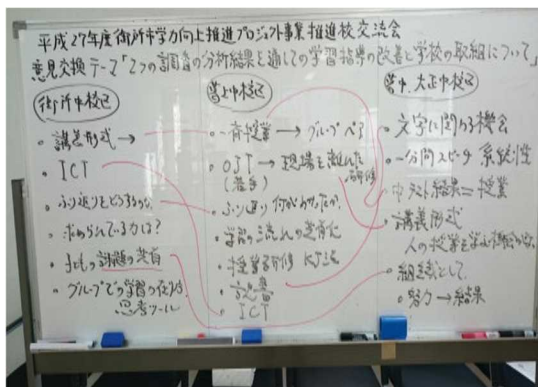 平成27年度御所市学力向上推進プロジェクト事業推進校交流会
意見交換テーマ「2つの調査の分析結果を通しての学習指導の改善と学校の取組について」
御所中校区
・講義形式→
・ICT
・ふり返りをどうするのか
・求められている力は?
・子どもの課題の共有
・グループでの学習の仕方
思考ツール
葛上中校区
・一斉授業→グループ ペア
・OJT→現場を離れた研修
(若手)
・ふり返り 何がわかったか
・学習の流れの共有化
・授業研修 KJ法
・ICT
葛中、大正中校区
・文字に関わる機会
・一分間スピーチ 系統性
・テスト結果=授業
・講義形式
人の授業を学ぶ機会が
・組織として
・努力→結果